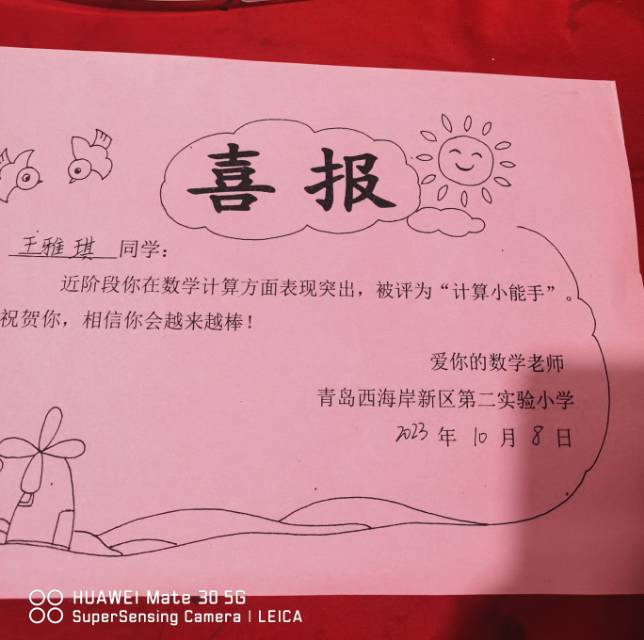 喜报
王雅琪 同学：
近阶段你在数学计算方面表现突出，被评为“计算小能手”。
祝贺你，相信你会越来越棒！
爱你的数学老师
青岛西海岸新区第二实验小学
2023 年 10 月 8 日
HUAWEI Mate 30 5G
SuperSensing Camera | LEICA